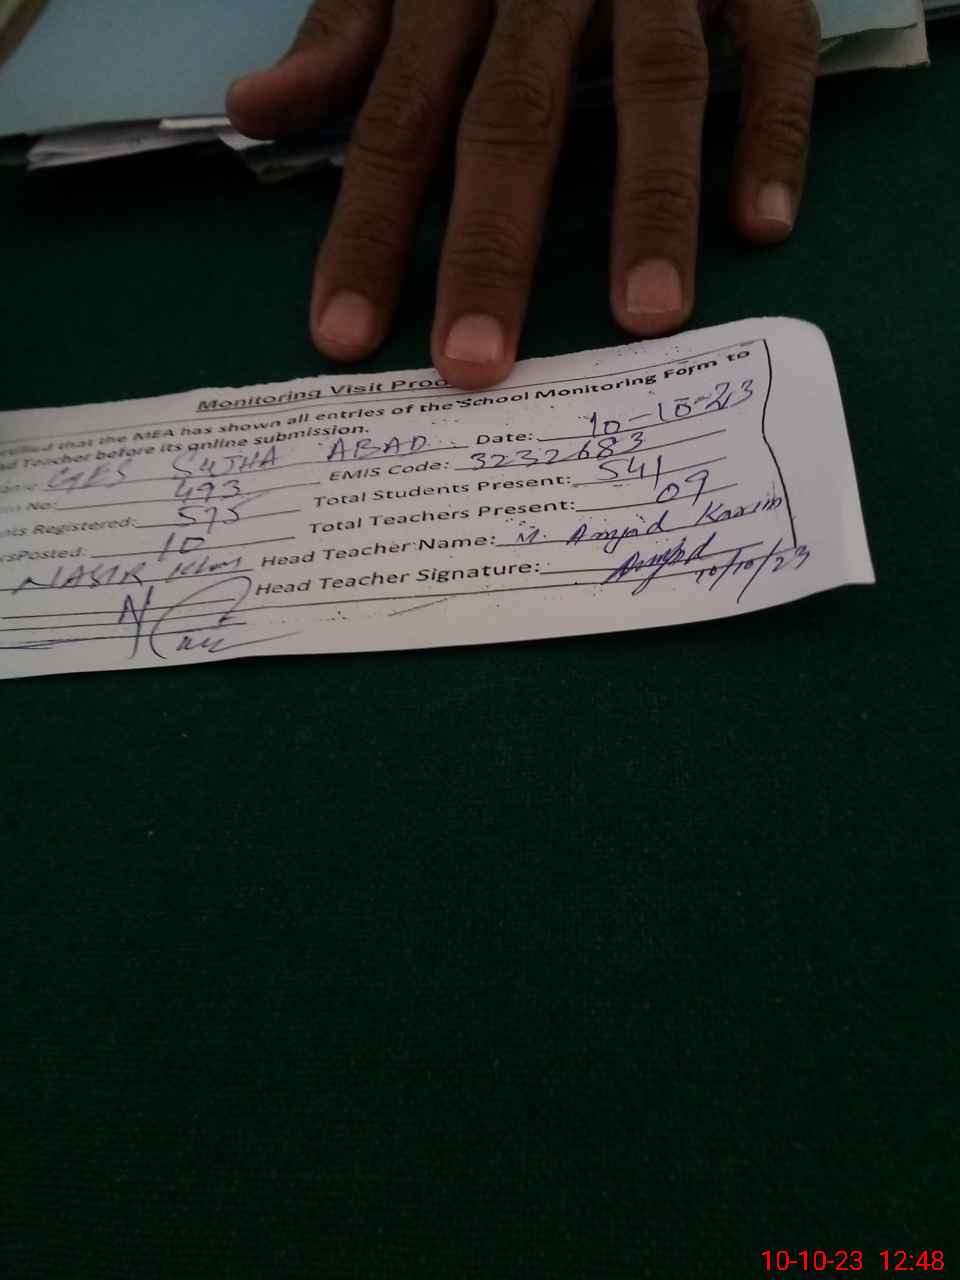 Monitoring Visit Proo
that the MEA has shown all entries of the School Monitoring Form to
Teacher before its online submission.
GES SUJHA ABAD Date: 10-10-23
No: 493 EMIS Code: 3232683
Registered: 575 Total Students Present: 541
Posted: 10 Total Teachers Present: 09
NASIR Khan Head Teacher Name: M. Amjad Karim
Head Teacher Signature: Amjad
10/10/23
10-10-23 12:48